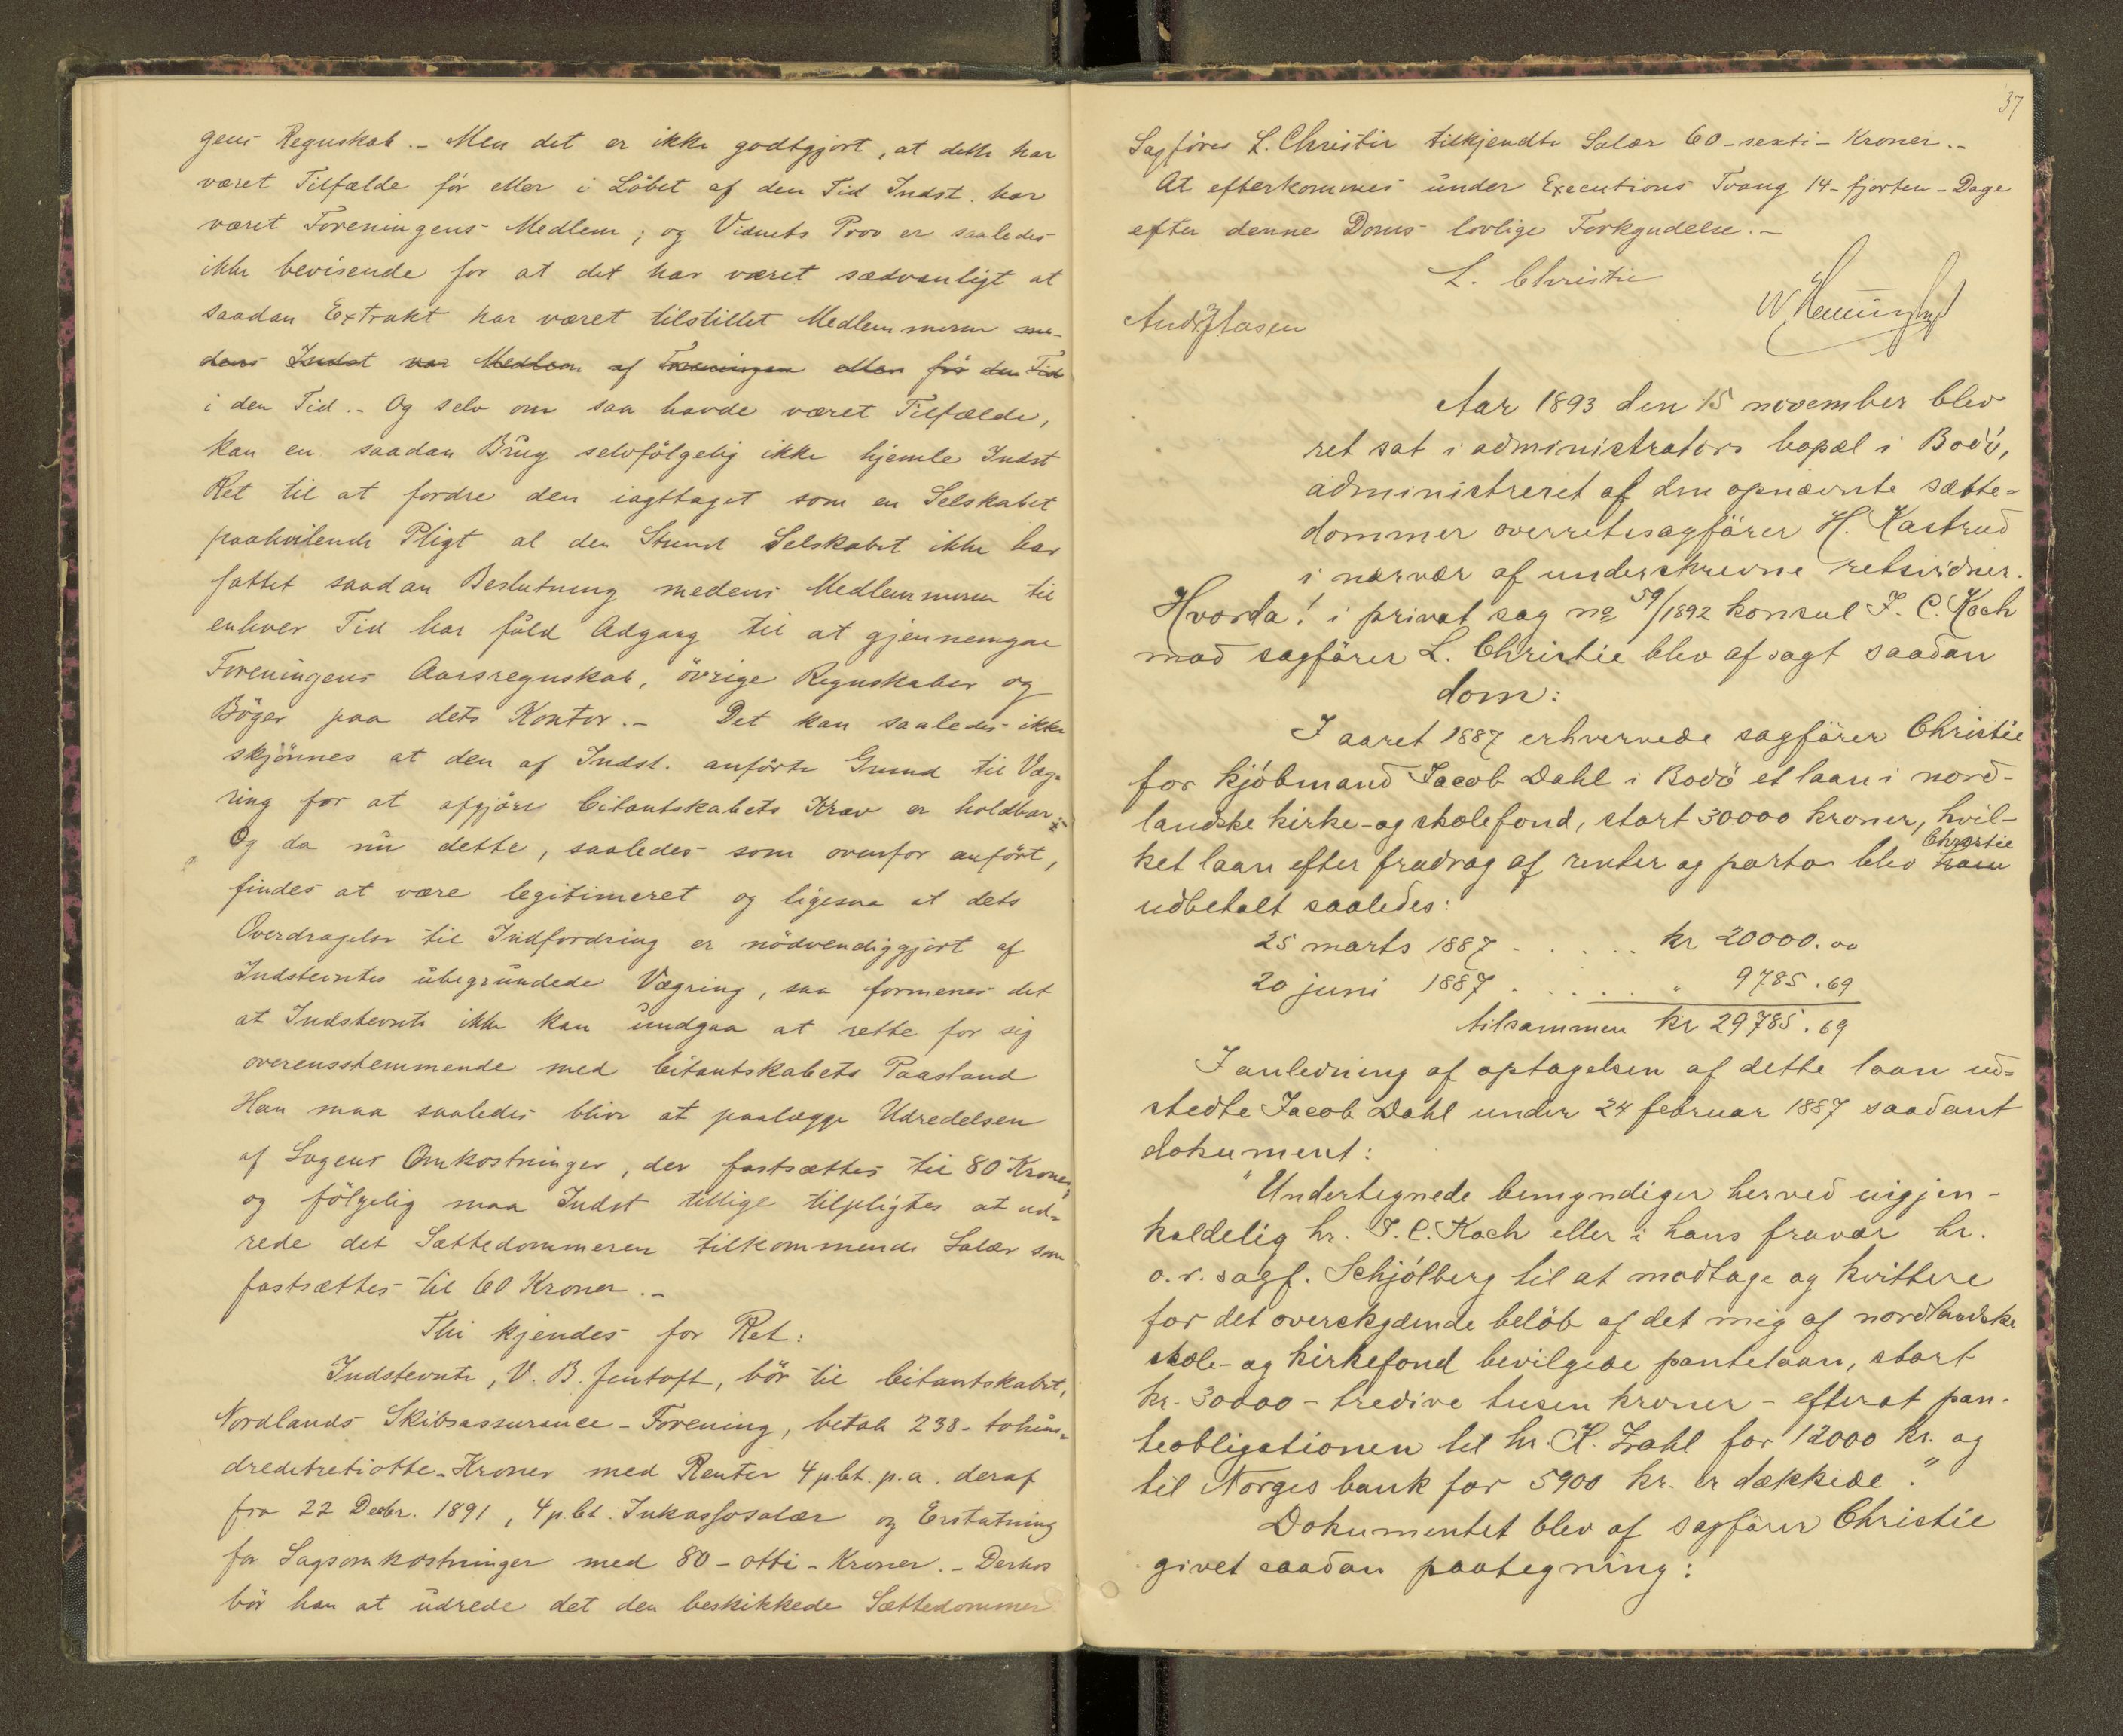 gens Regnskab. - Men det er ikke godtgjort, at dette har
været Tilfælde før eller i Löbet af den Tid Indst. har
været Foreningens Medlem; og Vidnets Prov er saaledes
ikke bevisende for at det har været sædvanligt at
saadan Extrakt har været tilstillet Medlemmerne me-
dens Indst var Medlem af Foreningen eller för den Tid
i den Tid. - Og selv om saa havde været Tilfælde,
kan en saadan Brug selvfölgelig ikke hjemle Indst
Ret til at fordre den iagttaget som en Selskabet
paahvilende Pligt al den Stund Selskabet ikke har
fattet saadan Beslutning medens Medlemmerne til
enhver Tid har fuld Adgang til at gjennemgaa
Foreningens Aarsregnskab, övrige Regnskaber og
Böger paa dets Kontor. - Det kan saaledes ikke
skjönnes at den af Indst. anförte Grund til Væg-
ring for at afgjöre Citantskabets Krav er holdbar;
Og da nu dette, saaledes som ovenfor anfört,
findes at være legitimeret og ligesaa at dets
Overdragelse til Indfordring er nödvendiggjort af
Indstevntes ubegrundede Vægring, saa formenes det
at Indstevnte ikke kan undgaa at rette for sig
overensstemmende med Citantskabets Paastand
Han maa saaledes blive at paalægge Udredelsen
af Sagens Omkostninger, der fastsættes til 80 Kroner,
og fölgelig maa Indst tillige tilpligtes at ud-
rede det Sættedommeren tilkommende Salær som
fastsættes til 60 Kroner. -
Thi kjendes for Ret:
Indstevnte, V. B. Jentoft, bör til Citantskabet,
Nordlands Skibsassurance-Forening, betale 238 - tohun-
dredetretiotte - Kroner med Renter 4 p.Ct. p.a. deraf
fra 22 Decbr. 1891, 4 p.Ct. Inkassosalær og Erstatning
for Sagsomkostninger med 80 - otti - Kroner. - Derhos
bör han at udrede det den beskikkede Sættedommer
37
Sagförer L. Christie tilkjendte Salær 60 - sexti - Kroner. -
At efterkommes under Executions Tvang 14 - fjorten - Dage
efter denne Doms lovlige Forkyndelse. -
L. Christie
Aar 1893 den 15 november blev
ret sat i administrators bopæl i Bodö,
administreret af den opnævnte sætte-
dommer overretssagförer H. Kastrud
i nærvær af underskrevne retsvidner.
Hvorda! i privat sag no 59/1892 konsul J. C. Koch
mod sagförer L. Christie blev afsagt saadan
dom:
I aaret 1887 erhvervede sagförer Christie
for kjöbmand Jacob Dahl i Bodö et laan i nord-
landske kirke- og skolefond, stort 30000 kroner, hvil-
Christie
ket laan efter fradrag af renter og porto blev ham
udbetalt saaledes:
25 marts 1887 . . . . . kr 20000.00
20 juni 1887 . . . . . " 9785.69
tilsammen kr 29785.69
I anledning af optagelsen af dette laan ud-
stedte Jacob Dahl under 24 februar 1887 saadant
dokument:
"Undertegnede bemyndiger herved uigjen-
kaldelig hr. J. C. Koch eller i hans fravær hr.
o.r.sagf. Schjölberg til at modtage og kvittere
for det overskydende belöb af det mig af nordlandske
skole- og kirkefond bevilgede pantelaan, stort
kr. 30000 - tredive tusen kroner - efterat pan-
teobligationen til hr. K. Zahl for 12000 kr. og
til Norges bank for 5900 kr. er dækkede."
Dokumentet blev af sagförer Christie
givet saadan paategning: